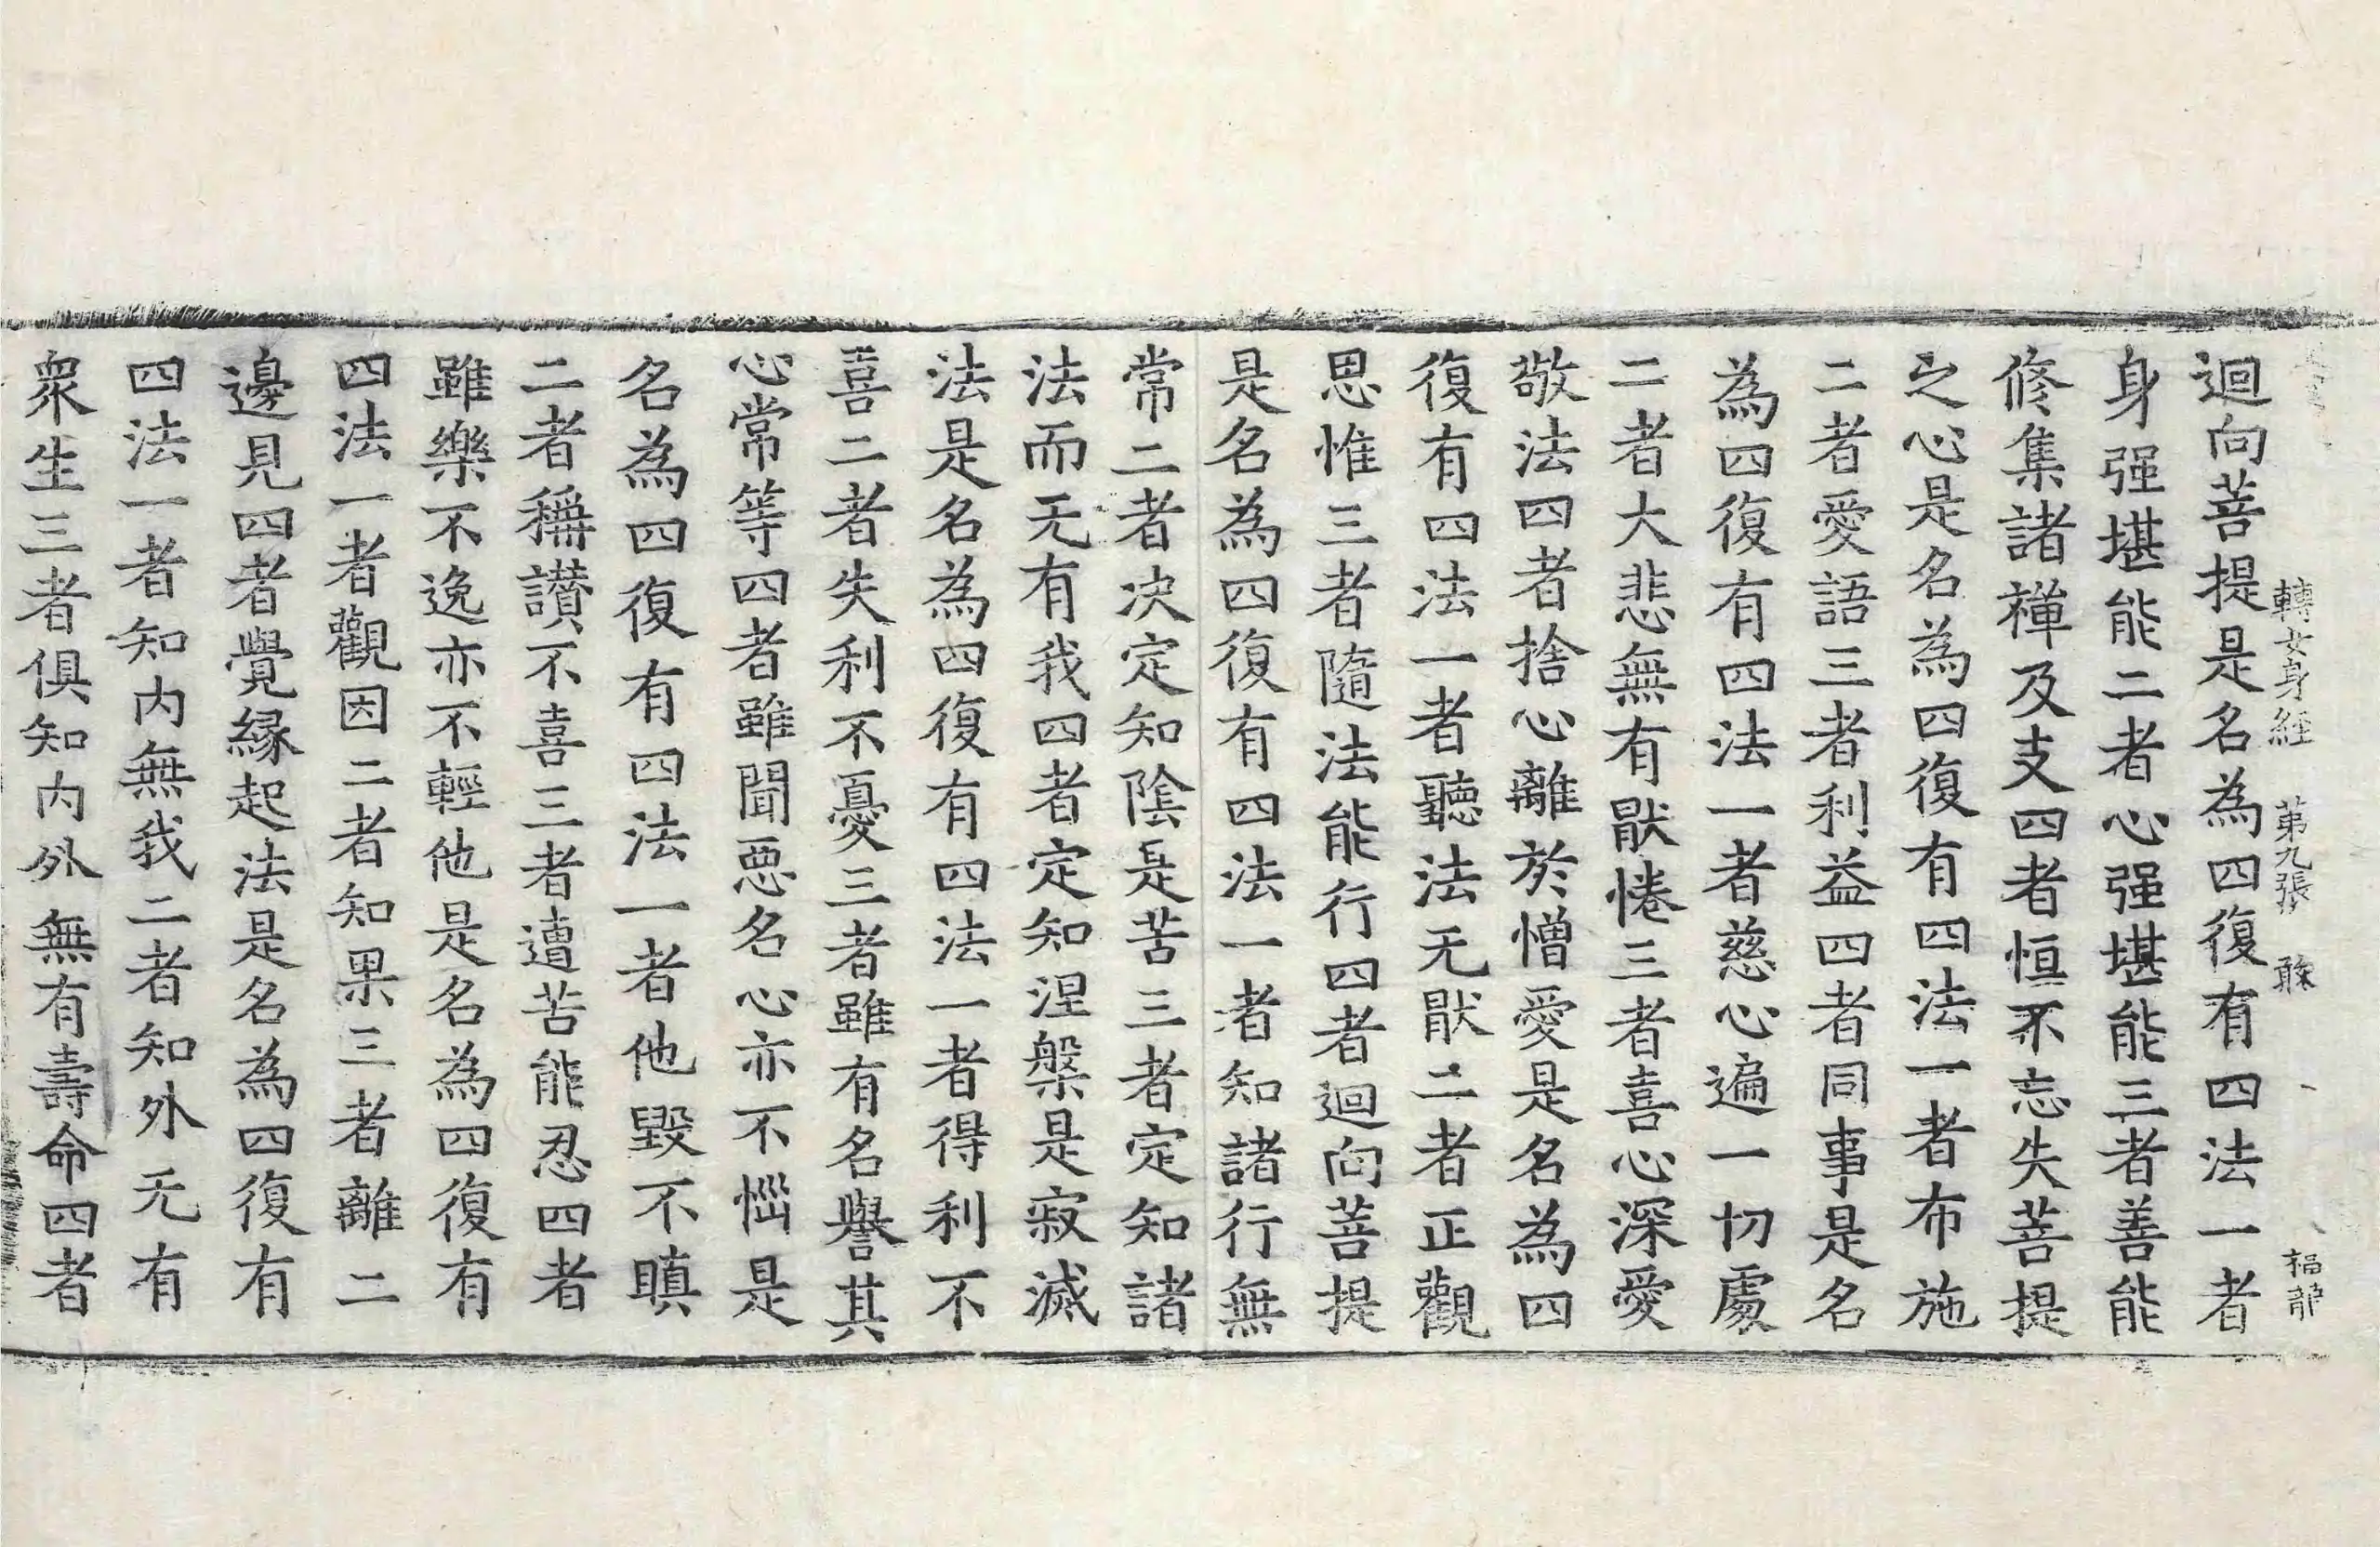 轉女身經 第九張 禄 福龍
迴向菩提是名為四復有四法一者
身强堪能二者心强堪能三者善能
修集諸禪及支四者恒不忘失菩提
之心是名為四復有四法一者布施
二者愛語三者利益四者同事是名
為四復有四法一者慈心遍一切處
二者大悲無有猒惓三者喜心深愛
敬法四者捨心離於憎愛是名為四
復有四法一者聽法无猒二者正觀
思惟三者隨法能行四者迴向菩提
是名為四復有四法一者知諸行無
常二者决定知陰是苦三者定知諸
法而无有我四者定知涅槃是寂滅
法是名為四復有四法一者得利不
喜二者失利不憂三者雖有名譽其
心常等四者雖聞惡名心亦不惱是
名為四復有四法一者他毀不瞋
二者稱讃不喜三者遭苦能忍四者
雖樂不逸亦不輕他是名為四復有
四法一者觀因二者知果三者離二
邊見四者覺緣起法是名為四復有
四法一者知内無我二者知外无有
衆生三者俱知内外無有壽命四者